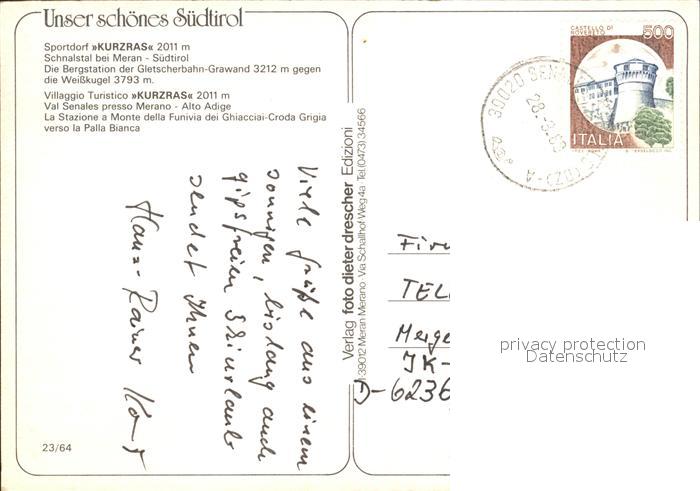 Unser schönes Südtirol
Sportdorf »KURZRAS« 2011 m
Schnalstal bei Meran - Südtirol
Die Bergstation der Gletscherbahn-Grawand 3212 m gegen
die Weißkugel 3793 m.
Villaggio Turistico »KURZRAS« 2011 m
Val Senales presso Merano - Alto Adige
La Stazione a Monte della Funivia dei Ghiacciai-Croda Grigia
verso la Palla Bianca
Viele Grüße aus einem
sonnigen, bislang auch
gipsfreien Skiurlaub
sendet Ihnen
Hans-Rainer
23/64
Verlag foto dieter drescher Edizioni
I-39012 Meran Merano · Via Schallhof Weg 4a · Tel. (0473) 34566
CASTELLO DI
ROVERETO
500
ITALIA
39020 SEN
28.3.83
(BZ)
Fir
TEL
Merge
JK-
D-6236
privacy protection
Datenschutz